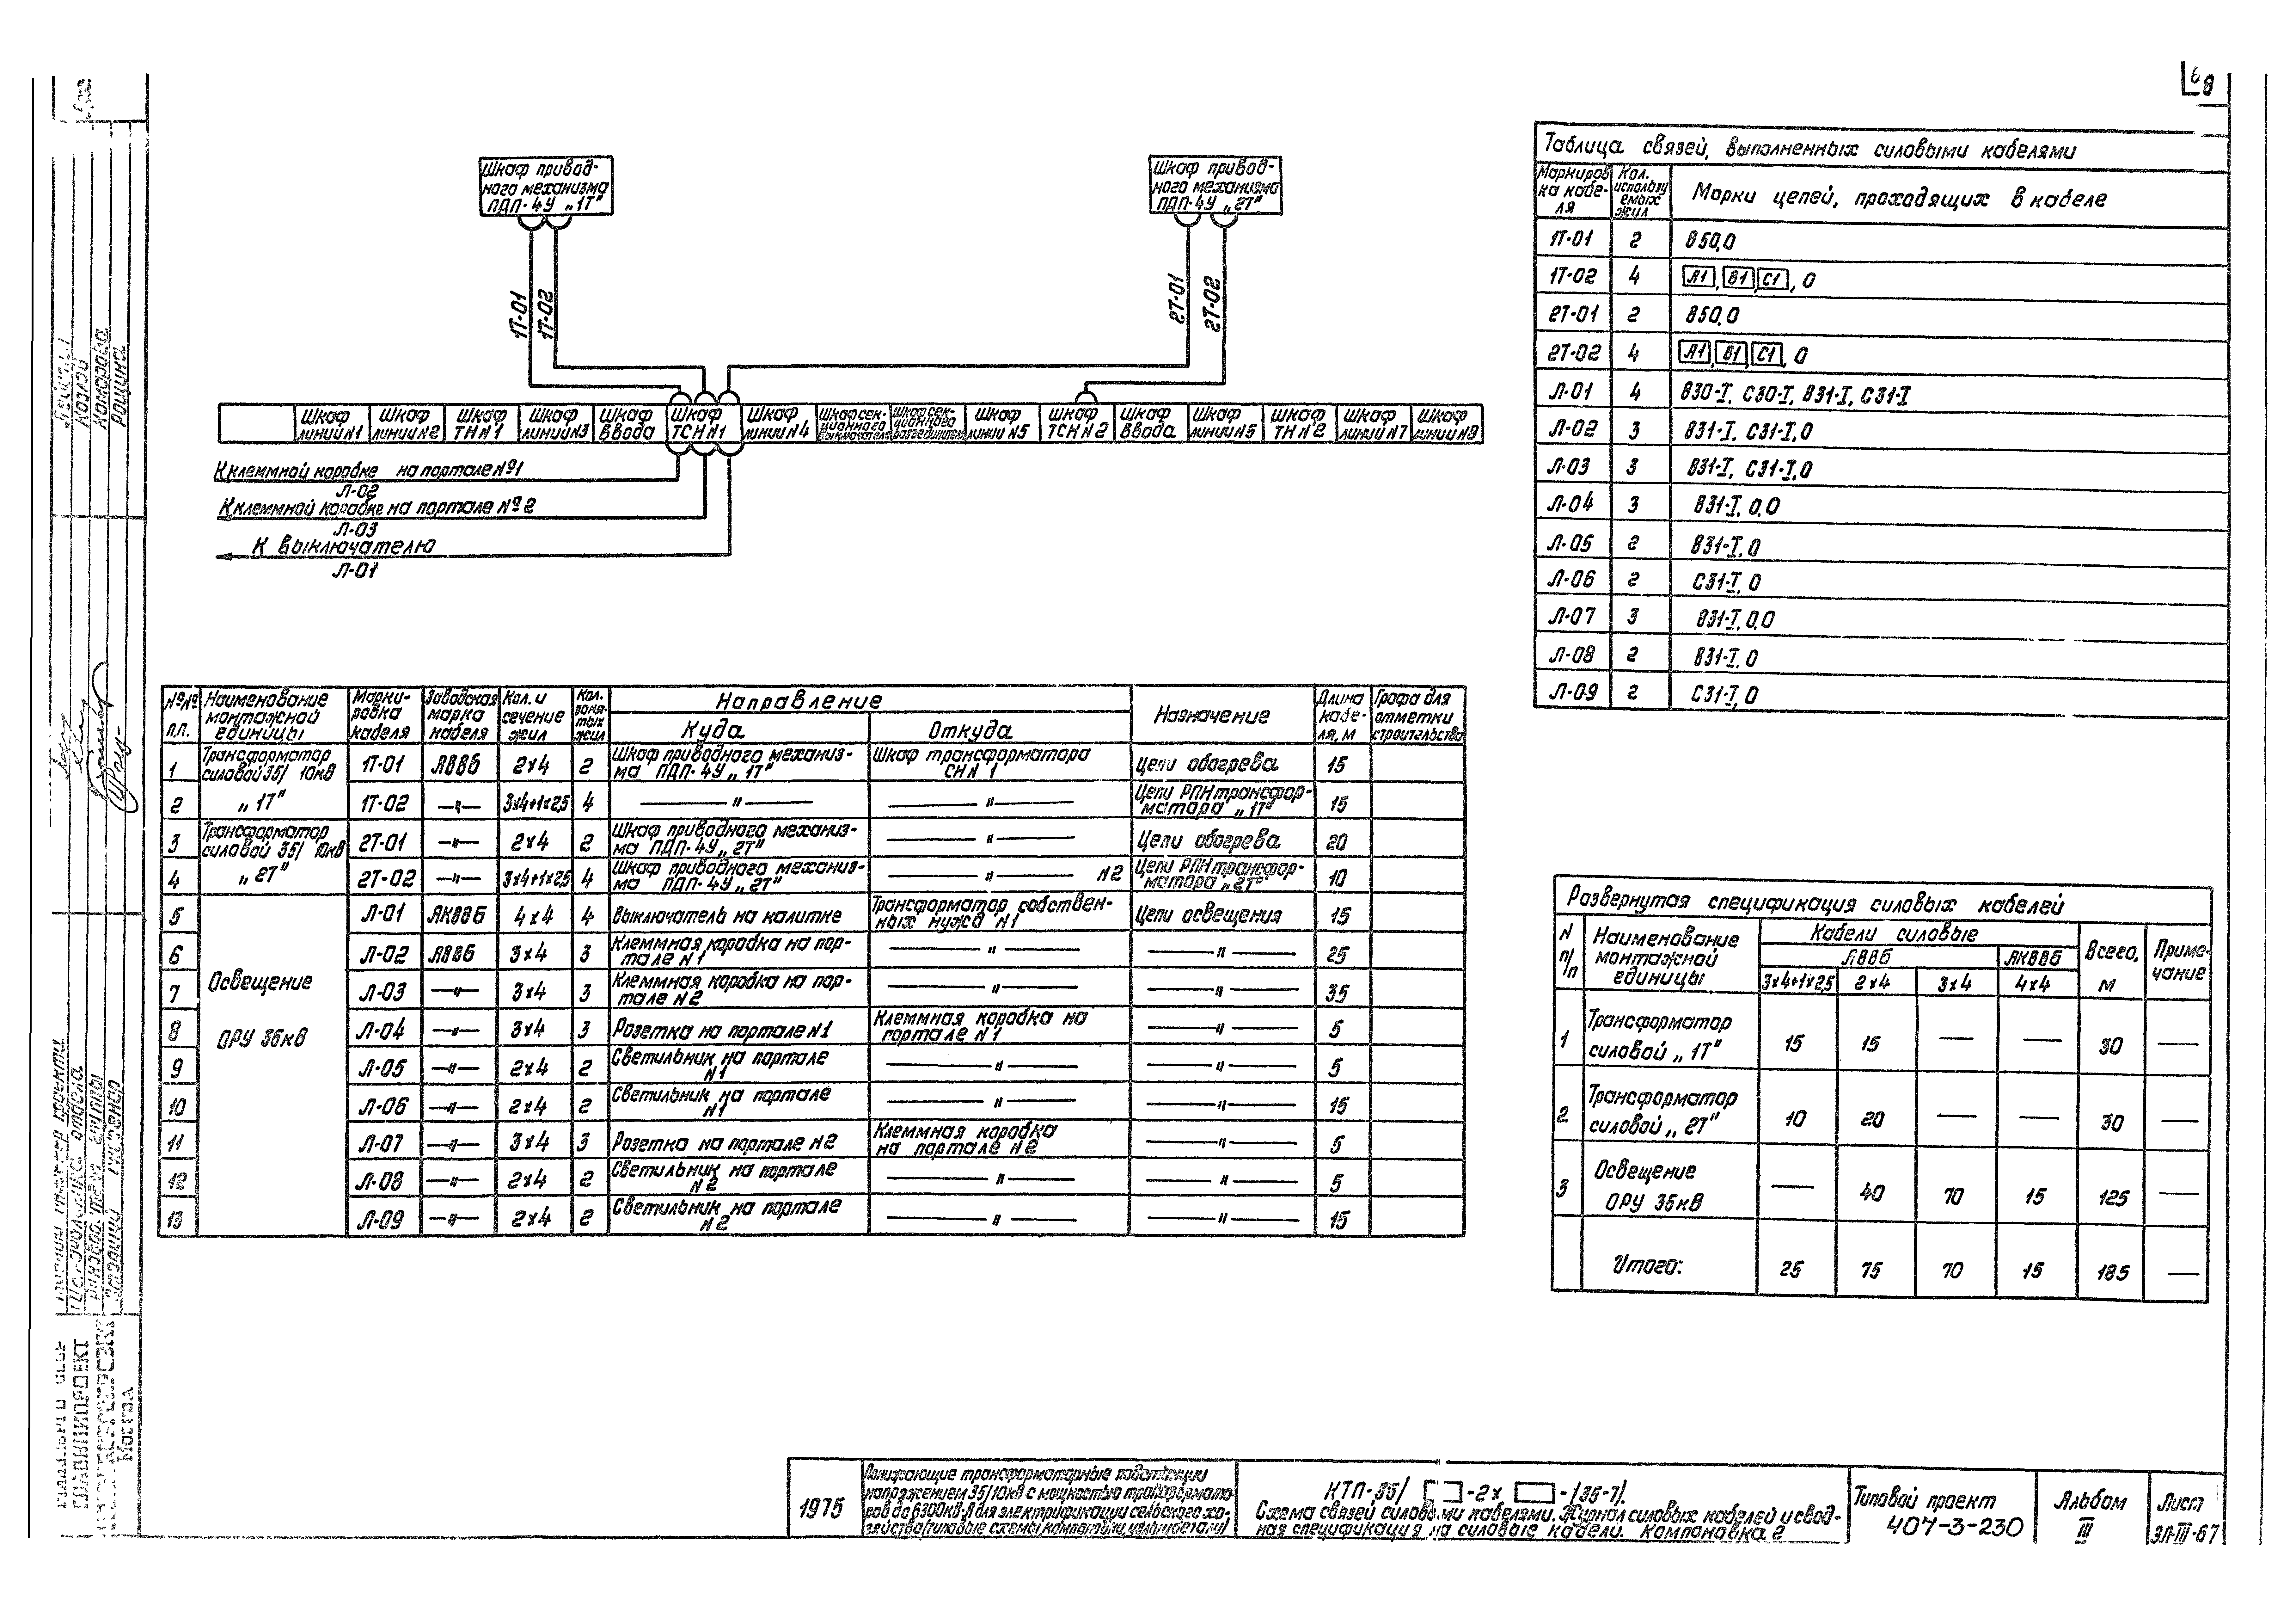 8
Шкаф привод-
ного механизма
ПДП-4У „1Т"
Шкаф привод-
ного механизма
ПДП-4У „2Т"
1Т-01
1Т-02
2Т-01
2Т-02
Шкаф линии N1
Шкаф линии N2
Шкаф ТН N1
Шкаф линии N3
Шкаф ввода
Шкаф ТСН N1
Шкаф линии N4
Шкаф сек-ционного выключателя
Шкаф сек-ционного разъединителя
Шкаф линии N5
Шкаф ТСН N2
Шкаф ввода
Шкаф линии N6
Шкаф ТН N2
Шкаф линии N7
Шкаф линии N8
К клеммной коробке на портале №1
Л-02
К клеммной коробке на портале №2
Л-03
К выключателю
Л-01
Таблица связей, выполненных силовыми кабелями
Маркиров ка кабе-ля | Кол. использу емых жил | Марки цепей, проходящих в кабеле
1Т-01 2 850,0
1Т-02 4 А1, В1, С1, 0
2Т-01 2 850,0
2Т-02 4 А1, В1, С1, 0
Л-01 4 В30-I, С30-I, В31-I, С31-I
Л-02 3 В31-I, С31-I, 0
Л-03 3 В31-I, С31-I, 0
Л-04 3 В31-I, 0,0
Л-05 2 В31-I, 0
Л-06 2 С31-I, 0
Л-07 3 В31-I, 0,0
Л-08 2 В31-I, 0
Л-09 2 С31-I, 0
№№ п.п. | Наименование монтажной единицы | Марки-ровка кабеля | Заводская марка кабеля | Кол. и сечение жил | Кол. заня-тых жил | Направление | Куда | Откуда | Назначение | Длина кабе-ля, м | Графа для отметки строительства
1 Трансформатор силовой 35/10кв „1Т" 1Т-01 АВВБ 2х4 2 Шкаф приводного механиз-ма ПДП-4У „1Т" Шкаф трансформатора СН N 1 Цепи обогрева 15
2 1Т-02 —"— 3х4+1х2,5 4 —"— —"— Цепи РПН трансфор-матора „1Т" 15
3 Трансформатор силовой 35/10кв „2Т" 2Т-01 —"— 2х4 2 Шкаф приводного механиз-ма ПДП-4У „2Т" —"— Цепи обогрева 20
4 2Т-02 —"— 3х4+1х2,5 4 Шкаф приводного механиз-ма ПДП-4У „2Т" —"— N2 Цепи РПН трансфор-матора „2Т" 10
5 Освещение ОРУ 35кв Л-01 АКВВБ 4х4 4 Выключатель на калитке Трансформатор собствен-ных нужд N1 Цепи освещения 15
6 Л-02 АВВБ 3х4 3 Клеммная коробка на пор-тале N1 —"— —"— 25
7 Л-03 —"— 3х4 3 Клеммная коробка на пор-тале N2 —"— —"— 35
8 Л-04 —"— 3х4 3 Розетка на портале N1 Клеммная коробка на портале N1 —"— 5
9 Л-05 —"— 2х4 2 Светильник на портале N1 —"— —"— 5
10 Л-06 —"— 2х4 2 Светильник на портале N1 —"— —"— 15
11 Л-07 —"— 3х4 3 Розетка на портале N2 Клеммная коробка на портале N2 —"— 5
12 Л-08 —"— 2х4 2 Светильник на портале N2 —"— —"— 5
13 Л-09 —"— 2х4 2 Светильник на портале N2 —"— —"— 15
Развернутая спецификация силовых кабелей
N п/п | Наименование монтажной единицы | Кабели силовые | АВВБ | АКВВБ | Всего, м | Приме-чание
3х4+1х2,5 | 2х4 | 3х4 | 4х4
1 Трансформатор силовой „1Т" 15 15 — — 30 —
2 Трансформатор силовой „2Т" 10 20 — — 30 —
3 Освещение ОРУ 35кв — 40 70 15 125 —
Итого: 25 75 70 15 185 —
Козлов
Комарова
Рощина
ГЛАВНИИПРОЕКТ
Москва
1975
Понижающие трансформаторные подстанции
напряжением 35/10кв с мощностью трансформато-
ров до 6300кв·А для электрификации сельского хо-
зяйства
КТП-35/ -2х -(35-7).
Схема связей силовыми кабелями. Журнал силовых кабелей и свод-
ная спецификация на силовые кабели. Компоновка 2
Типовой проект
407-3-230
Альбом
III
Лист
ЭЛ-III-67